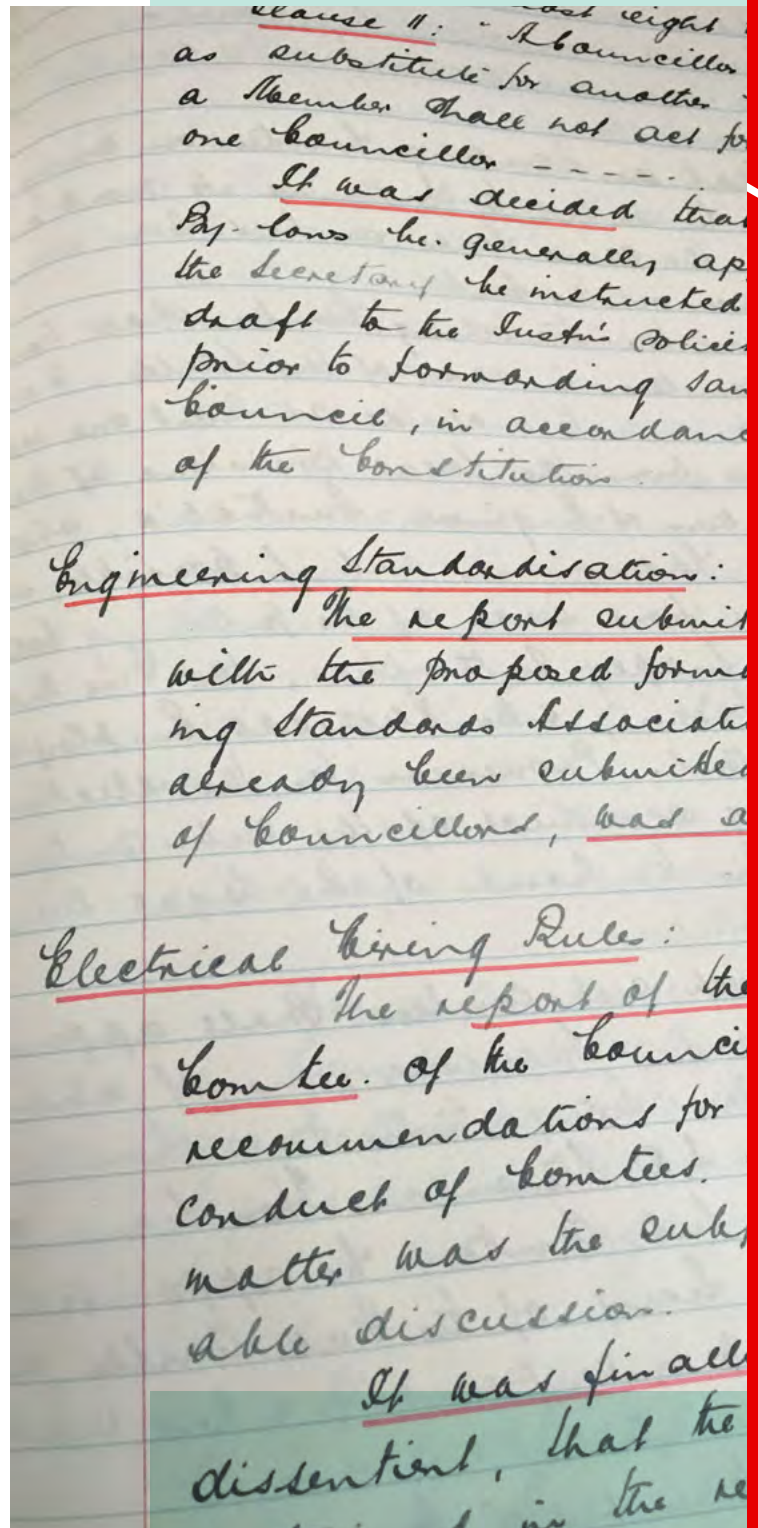 ost eight
Clause 11: "A Councillor
as substitute for another
a Member shall not act fo
one Councillor - - - - -.
It was decided that
By-laws be generally ap
the Secretary be instructed
draft to the Instn's solici
prior to forwarding sam
Council, in accordanc
of the Constitution.
Engineering Standardisation:
The report submit
with the proposed forma
ing Standards Associati
already been submitted
of Councillors, was a
Electrical Wiring Rules:
The report of the
Comtee. of the Counci
recommendations for
conduct of Comtees.
matter was the subj
able discussion.
It was finall
dissentient, that the
in the re